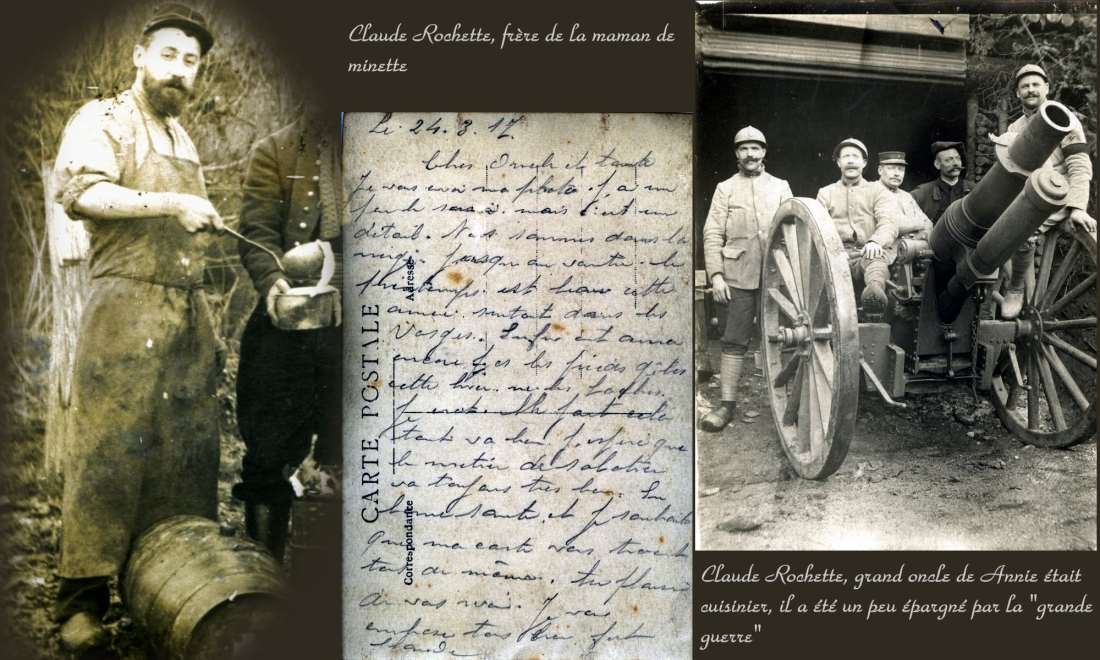 Claude Rochette, frère de la maman de
minette
Le 24.3.17
Cher Oncle et tante
Je vous envoi ma photo. J'ai un
peu le mais c'est un
détail. Nous sommes dans la
neige. Jusqu'au ventre. le
printemps est beau cette
année surtout dans les
Vosges. Enfin
encore les pieds gelés
cette
tout va bien. J'espère que
le métier de sabotier
va toujours très bien. En
bonne santé. et Je souhaite
que ma carte vous trouve
tout de même. Au plaisir
de vous voir. Je vous
embrasse tous bien fort
Claude
CARTE POSTALE
Correspondance
Adresse
Claude Rochette, grand oncle de Annie était
cuisinier, il a été un peu épargné par la "grande
guerre"